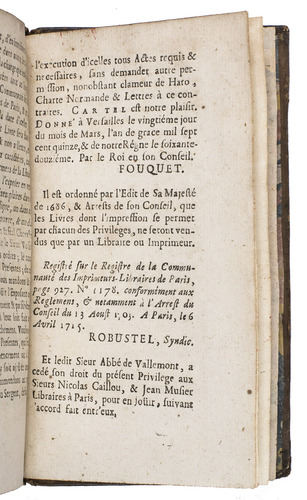 l'execution d'icelles tous Actes requis &
necessaires, sans demander autre per-
mission, nonobstant clameur de Haro,
Charte Normande & Lettres à ce con-
traires. CAR TEL est notre plaisir.
DONNE' à Versailles le vingtiéme jour
du mois de Mars, l'an de grace mil sept
cent quinze, & de notre Régne le soixante-
douziéme. Par le Roi en son Conseil.
FOUQUET.
Il est ordonné par l'Edit de Sa Majesté
de 1686, & Arrests de son Conseil, que
les Livres dont l'impression se permet
par chacun des Privileges, ne seront ven-
dus que par un Libraire ou Imprimeur.
Registré sur le Registre de la Commu-
nauté des Imprimeurs-Libraires de Paris,
page 927. N° 1178. conformément aux
Reglemens, & notamment à l'Arrest du
Conseil du 13 Aoust 1703. A Paris, le 6
Avril 1715.
ROBUSTEL, Syndic.
Et ledit Sieur Abbé de Vallemont, a
cedé son droit du présent Privilege aux
Sieurs Nicolas Caillou, & Jean Musier
Libraires à Paris, pour en jouir, suivant
l'accord fait entr'eux,